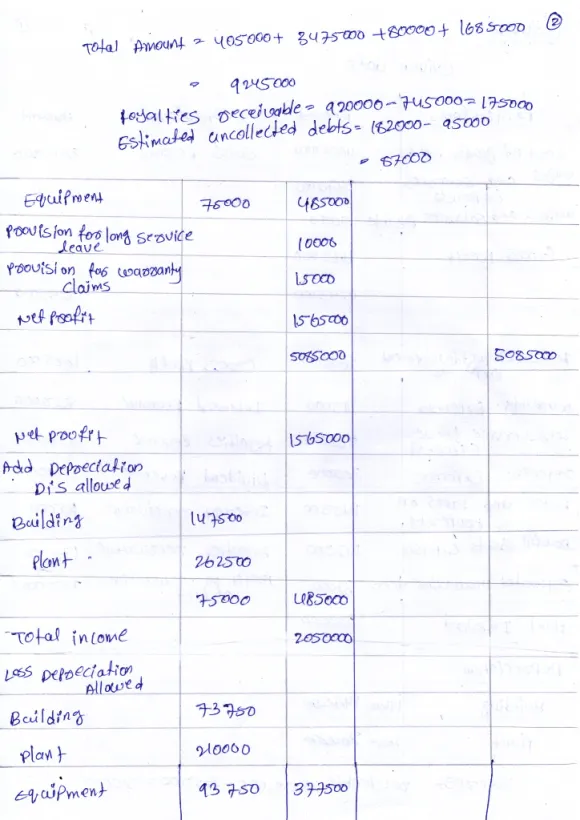 ②
Total Amount = 405000 + 3475000 + 80000 + 1685000
= 9245000
Royalties receivable = 920000 - 745000 = 175000
Estimated uncollected debts = 182000 - 95000
= 87000
Equipment 75000 485000
Provision for long service leave 10000
Provision for warranty claims 15000
Net Profit 1565000
5085000 5085000
Net profit 1565000
Add Depreciation
Dis allowed
Building 147500
Plant 262500
75000 485000
Total income 2050000
Less Depreciation
Allowed
Building 73750
Plant 210000
Equipment 93750 377500